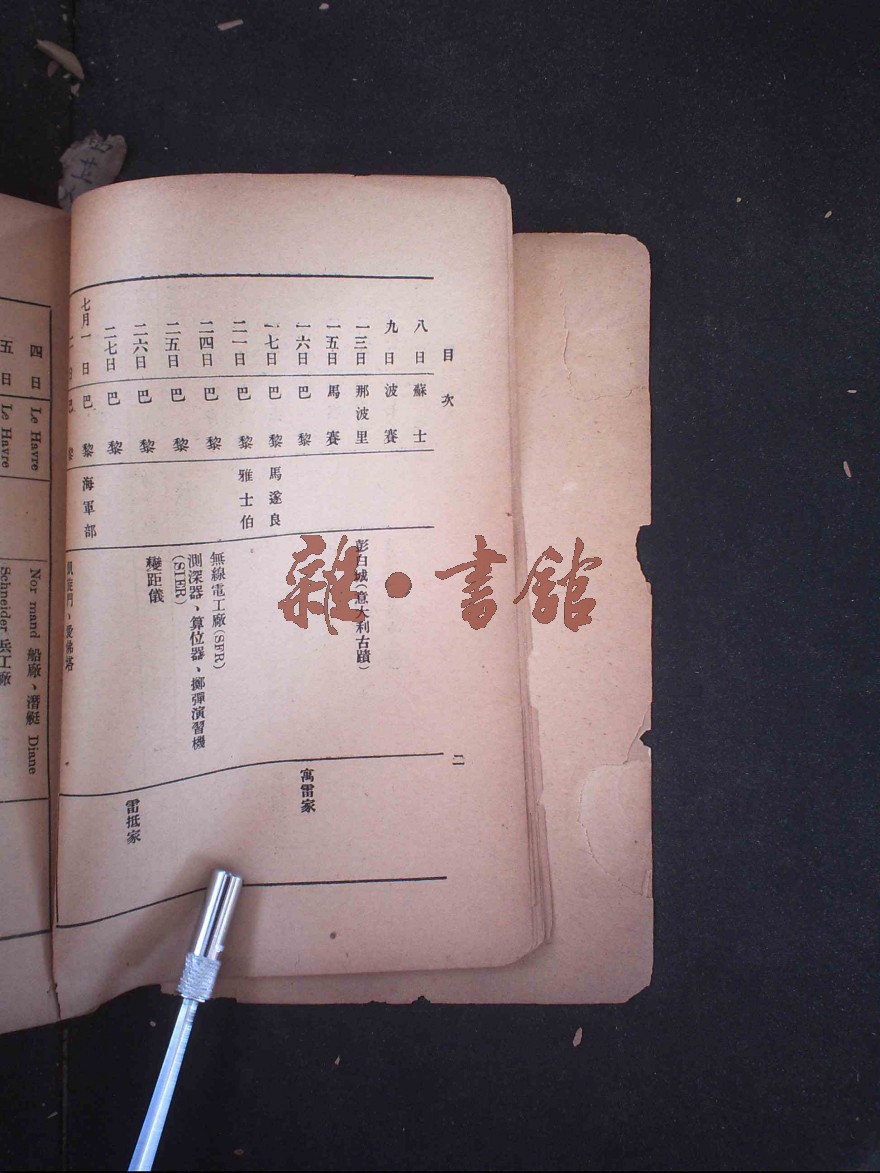 目次
八日 蘇士
九日 波賽
一三日 那波里 彭白城(意大利古蹟)
一五日 馬賽
一六日 巴黎 寓雷家
一七日 巴黎 馬遂良
二一日 巴黎 雅士伯
二四日 巴黎 無線電工廠(SFR)
二五日 巴黎 測深器、算位器、擲彈演習機(STER)
二六日 巴黎 變距儀
二七日 巴黎 雷抵家
七月一日 巴黎 海軍部
二日 巴黎 凱旋門、愛佛塔
二
四日 Le Havre Nor mand 船廠、潛艇 Diane
五日 Le Havre Schneider 兵工廠
雜·書館